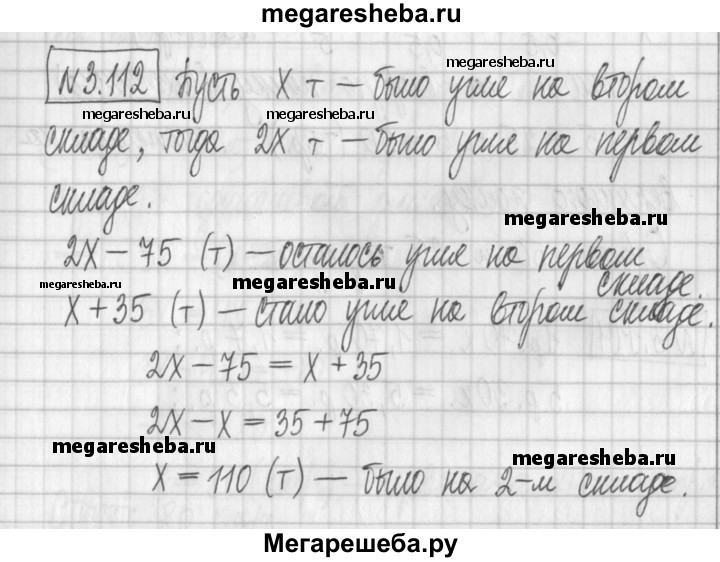 megaresheba.ru
megaresheba.ru
№3.112 Пусть x т — было угля на втором
megaresheba.ru megaresheba.ru
складе, тогда 2x т — было угля на первом
складе.
megaresheba.ru
2x – 75 (т) — осталось угля на первом
складе.
megaresheba.ru megaresheba.ru
x + 35 (т) — стало угля на втором складе.
2x – 75 = x + 35
2x – x = 35 + 75
megaresheba.ru megaresheba.ru
x = 110 (т) — было на 2-м складе.
Мегарешеба.ру